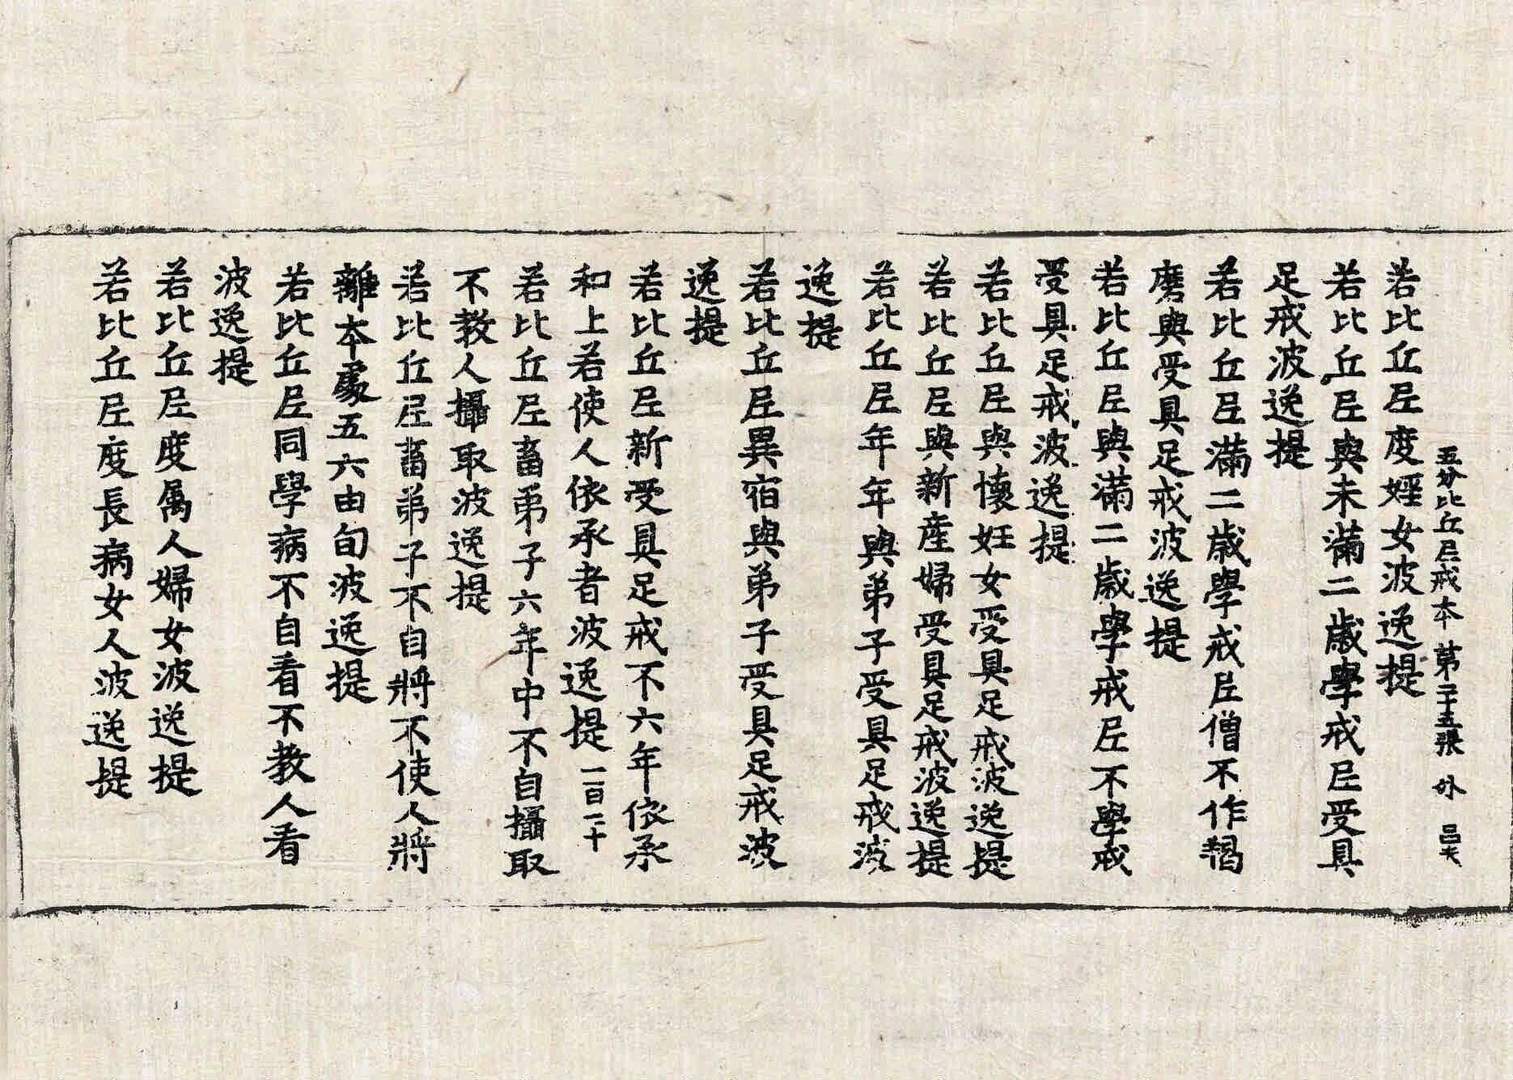 五分比丘尼戒本 第二十五張 外 吕夫
若比丘尼度婬女波逸提
若比丘尼與未滿二歲學戒尼受具
足戒波逸提
若比丘尼滿二歲學戒尼僧不作羯
磨與受具足戒波逸提
若比丘尼與滿二歲學戒尼不學戒
受具足戒波逸提
若比丘尼與懷妊女受具足戒波逸提
若比丘尼與新産婦受具足戒波逸提
若比丘尼年年與弟子受具足戒波
逸提
若比丘尼異宿與弟子受具足戒波
逸提
若比丘尼新受具足戒不六年依承
和上若使人依承者波逸提 一百二十
若比丘尼畜弟子六年中不自攝取
不教人攝取波逸提
若比丘尼畜弟子不自將不使人將
離本處五六由旬波逸提
若比丘尼同學病不自看不教人看
波逸提
若比丘尼度属人婦女波逸提
若比丘尼度長病女人波逸提